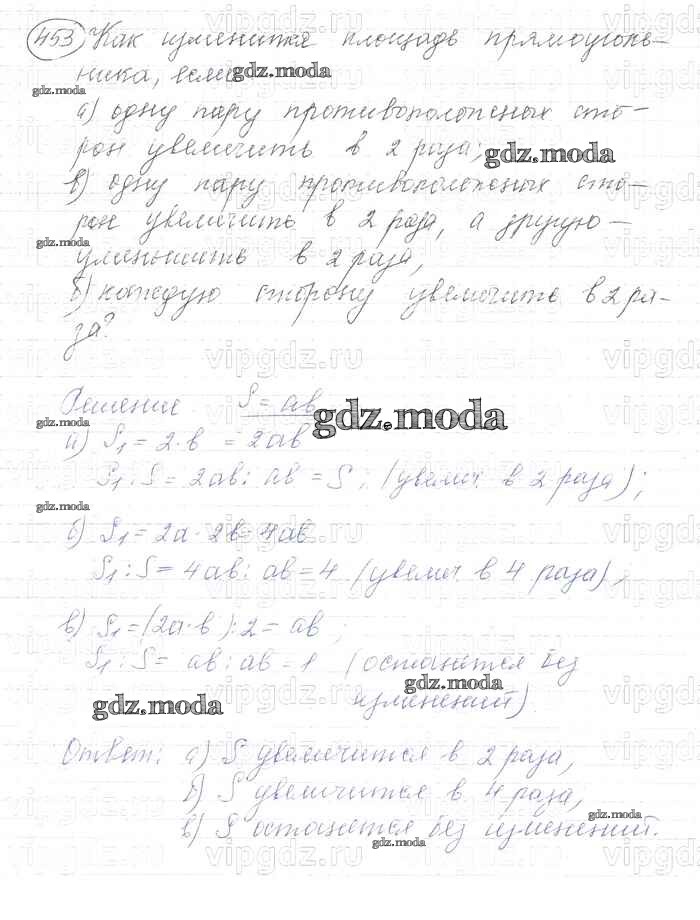 453 Как изменится площадь прямоуголь-
ника, если
а) одну пару противоположных сто-
рон увеличить в 2 раза;
в) одну пару противоположных сто-
рон увеличить в 2 раза, а другую -
уменьшить в 2 раза,
б) каждую сторону увеличить в 2 ра-
за?
Решение S = ab
а) S1 = 2·b = 2ab
S1 : S = 2ab : ab = S; (увелич. в 2 раза);
б) S1 = 2a · 2b = 4ab
S1 : S = 4ab : ab = 4 (увелич. в 4 раза);
в) S1 = (2a·b) : 2 = ab;
S1 : S = ab : ab = 1 (останется без
изменений)
Ответ: а) S увеличится в 2 раза,
б) S увеличится в 4 раза,
в) S останется без изменений.
gdz.moda
vipgdz.ru